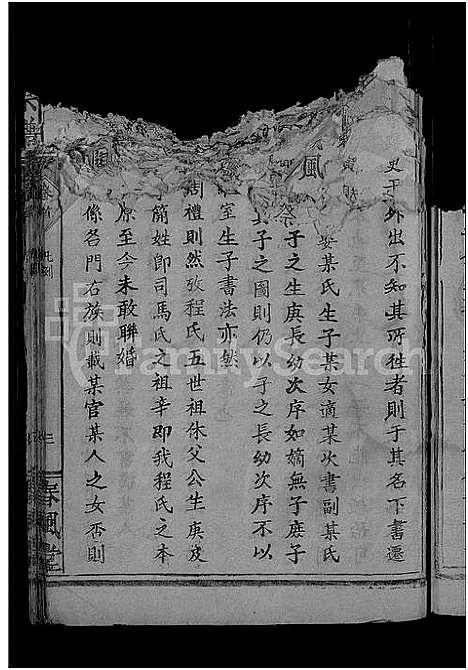 外出不知其所往者則于其名下書遷
娶某氏生子某女適某次書副某氏
祭子之生庚長幼次序如嫡無子庶子
子之圖則仍以子之長幼次序不以
室生子書法亦然
周禮則然攷程氏五世祖休父公生庚及
簡姓卽司馬氏之祖辛即我程氏之本
原至今未敢聯婚
係各門右族則載某官某人之女否則
凡例
三
春風堂
FamilySearch